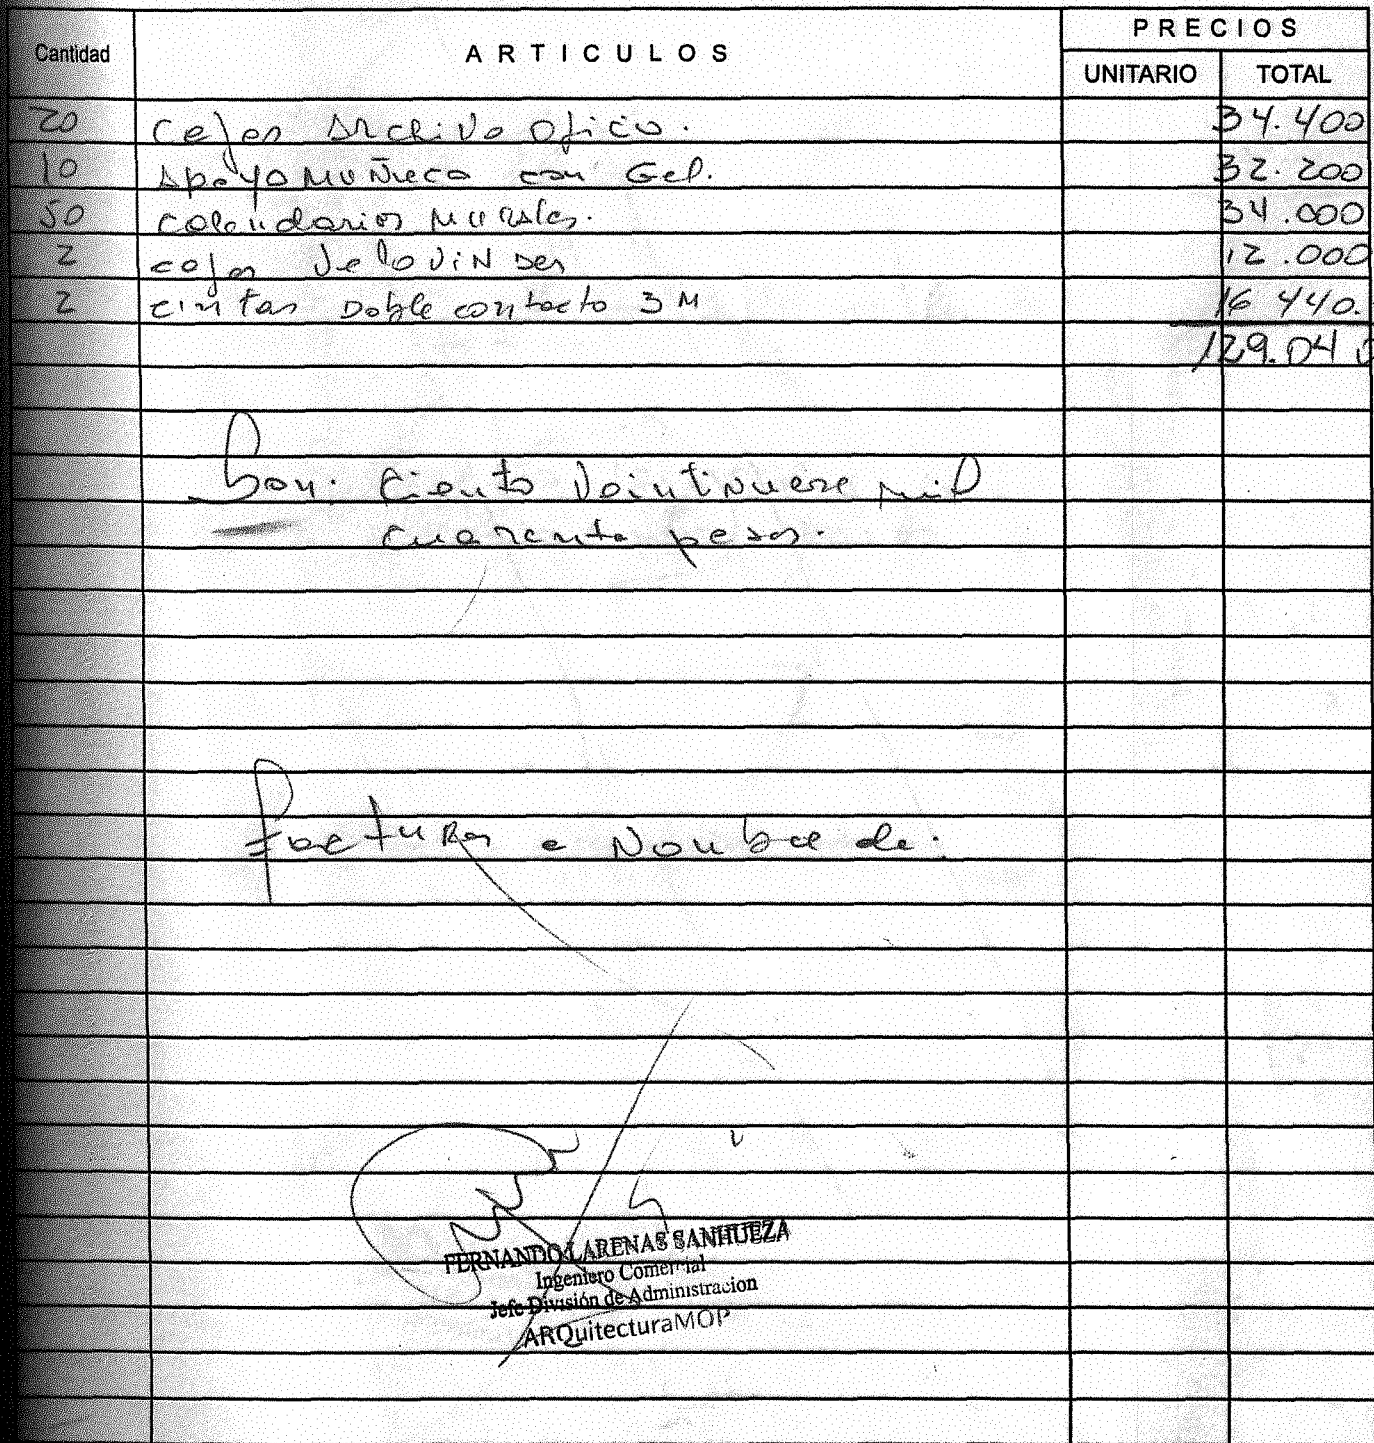 PRECIOS
Cantidad ARTICULOS UNITARIO TOTAL
20 cajas Archivo oficio. 34.400
10 Apoyo muñeca con Gel. 32.200
50 calendarios murales. 34.000
2 cajas 12.000
2 cintas Doble contacto 3M 16 440.
129.040
Son: Ciento Veintinueve mil
cuarenta pesos.
factura a Nombre de:
FERNANDO LARENAS SANHUEZA
Ingeniero Comercial
Jefe División de Administracion
ARQuitecturaMOP